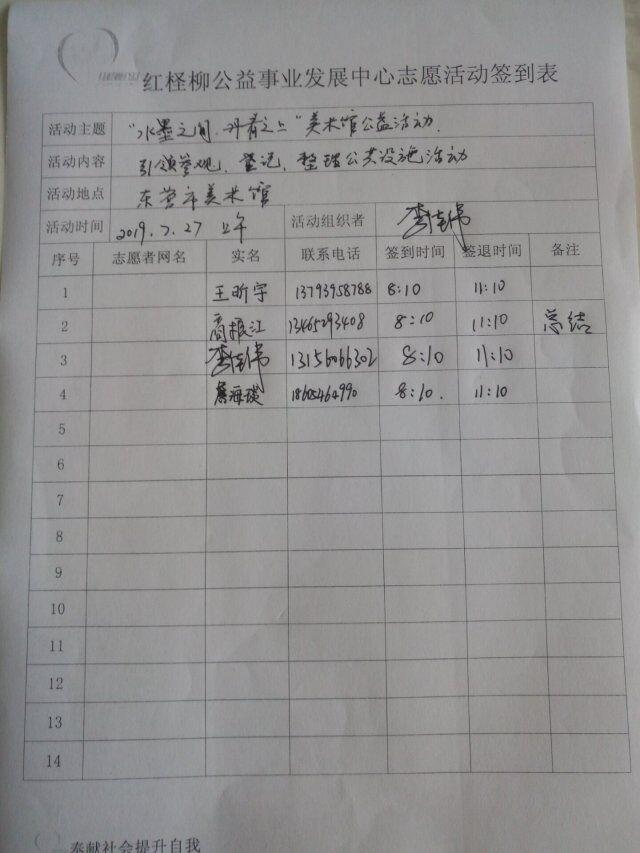 红柽柳公益事业发展中心志愿活动签到表
活动主题 "水墨之间,丹青之上"美术馆公益活动.
活动内容 引领参观、登记、整理公共设施活动
活动地点 东营市美术馆
活动时间 2019.7.27 上午 活动组织者
序号 志愿者网名 实名 联系电话 签到时间 签退时间 备注
1 王昕宇 13793958788 8:10 11:10
2 商振江 13465293408 8:10 11:10 总结
3 13156066302 8:10 11:10
4 海瑛 18605464990 8:10. 11:10
5
6
7
8
9
10
11
12
13
14
奉献社会提升自我